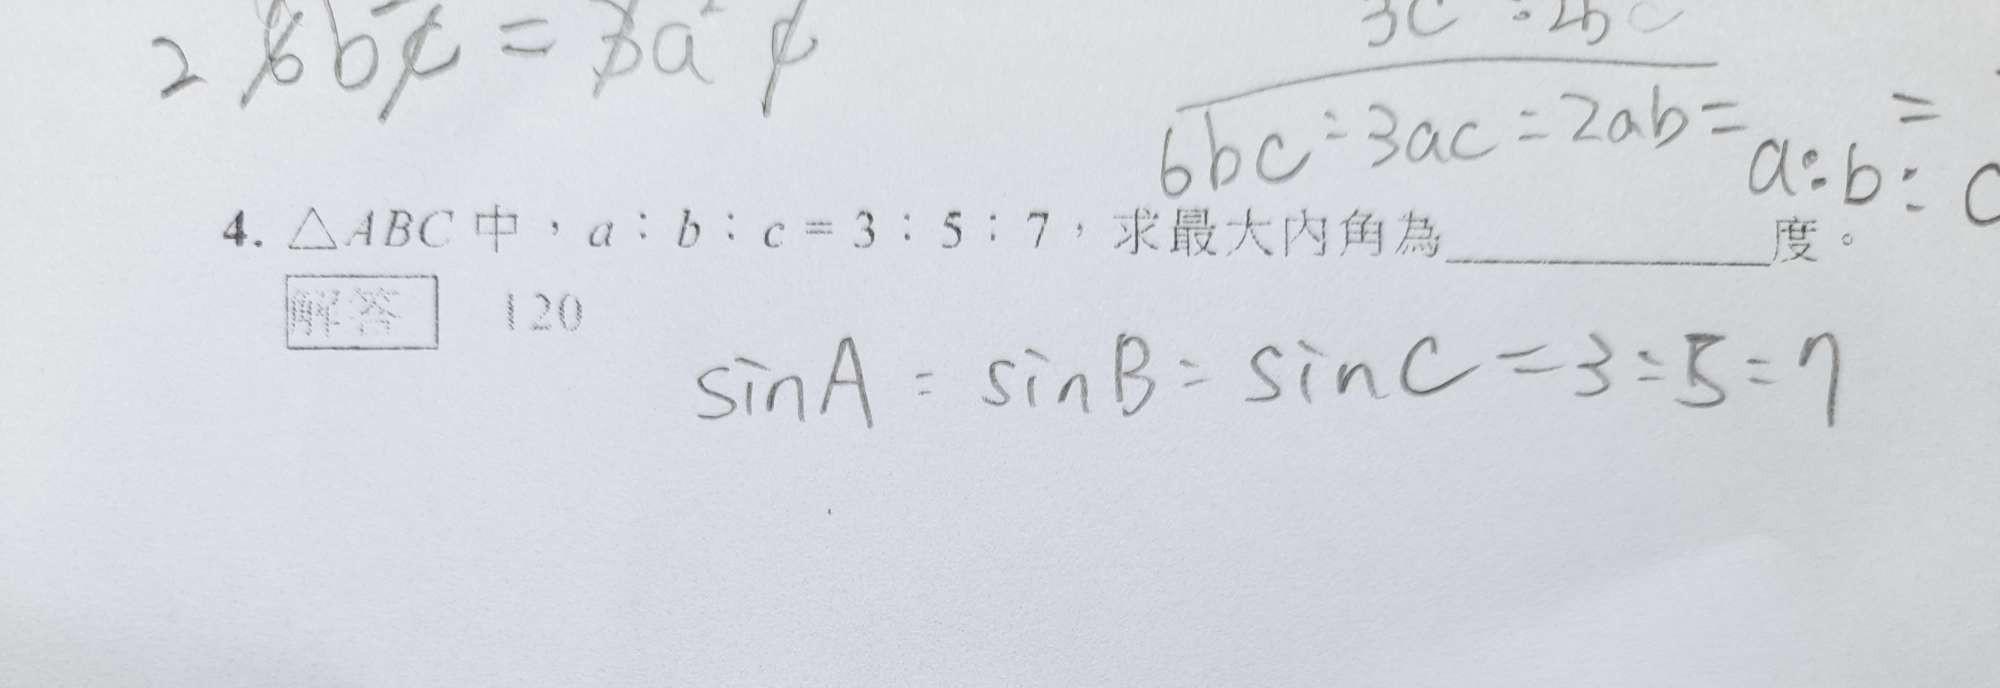 2 6bc = 3a²c
3c : 2b
6bc : 3ac : 2ab =
a : b : c
4. △ABC 中，a：b：c = 3：5：7，求最大內角為__________度。
解答 120
sinA : sinB : sinC = 3 : 5 : 7